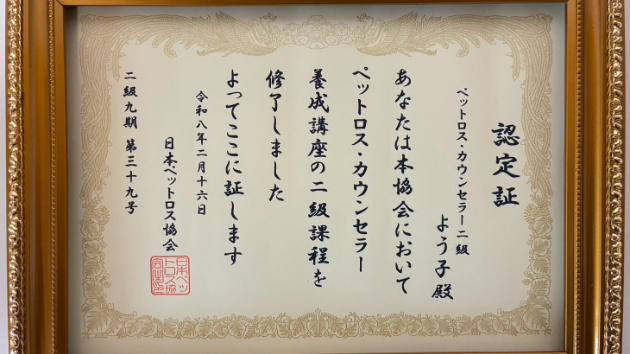 認定証
ペットロス・カウンセラー二級
よう子殿
あなたは本協会において
ペットロス・カウンセラー
養成講座の二級課程を
修了しました
よってここに証します
令和八年二月十六日
日本ペットロス協会
二級九期 第三十九号